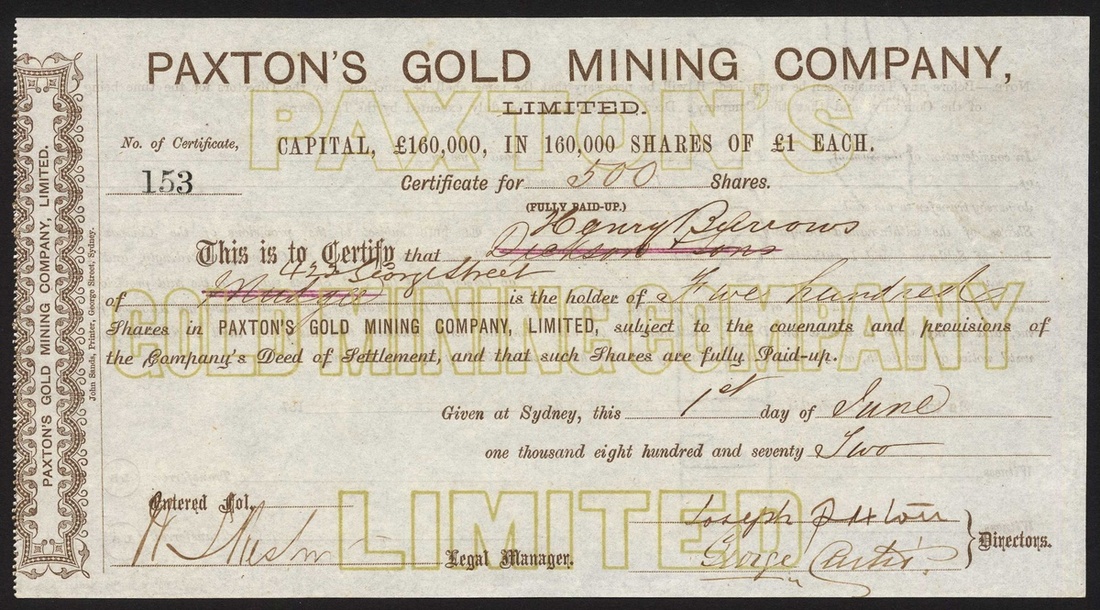 PAXTON'S GOLD MINING COMPANY,
LIMITED.
No. of Certificate,
CAPITAL, £160,000, IN 160,000 SHARES OF £1 EACH.
153
Certificate for 500 Shares.
(FULLY PAID-UP.)
Henry
This is to Certify that Dickson & Sons
422 George Street
of Mudgee is the holder of Five hundred
Shares in PAXTON'S GOLD MINING COMPANY, LIMITED, subject to the covenants and provisions of
the Company's Deed of Settlement, and that such Shares are fully Paid-up.
Given at Sydney, this 1st day of June
one thousand eight hundred and seventy Two
Entered Fol.
Legal Manager.
Joseph Paxton
George
Directors.
PAXTON'S GOLD MINING COMPANY, LIMITED.
John Sands, Printer, George Street, Sydney.
PAXTON'S
GOLD MINING COMPANY
LIMITED